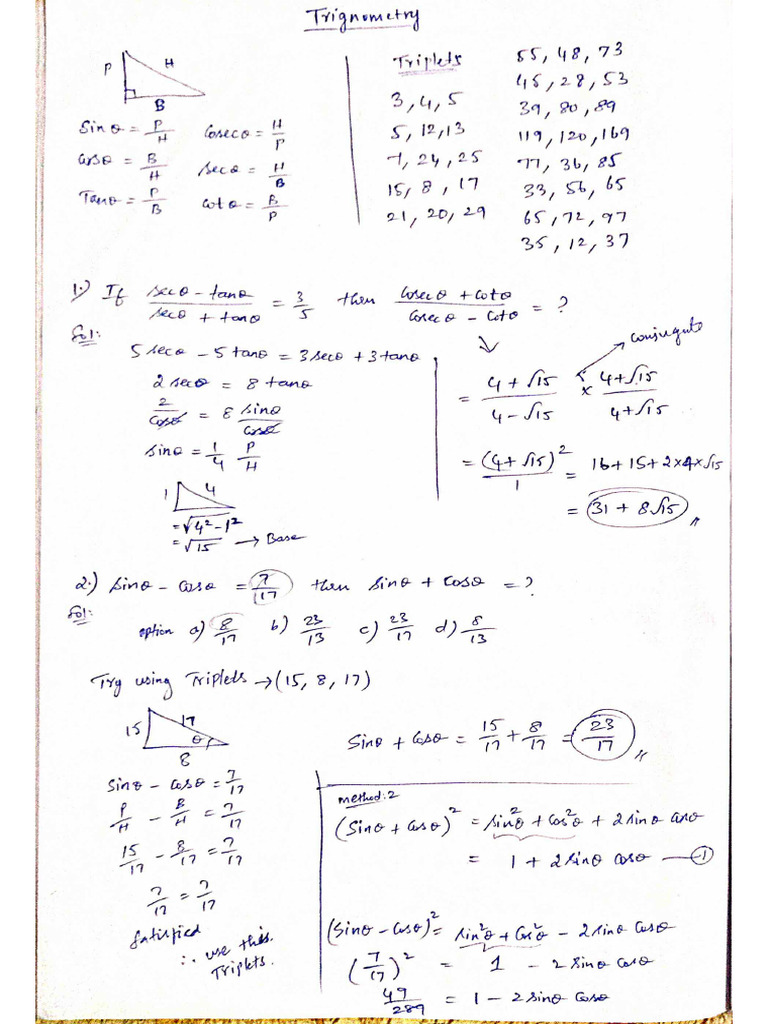 Trignometry
P
H
B
Sinθ = P/H   Cosecθ = H/P
Cosθ = B/H   Secθ = H/B
Tanθ = P/B   Cotθ = B/P
Triplets
3, 4, 5
5, 12, 13
7, 24, 25
15, 8, 17
21, 20, 29
55, 48, 73
45, 28, 53
39, 80, 89
119, 120, 169
77, 36, 85
33, 56, 65
65, 72, 97
35, 12, 37
1.) If (secθ - tanθ)/(secθ + tanθ) = 3/5 then (Cosecθ + Cotθ)/(Cosecθ - Cotθ) = ?
Sol:
5 secθ - 5 tanθ = 3 secθ + 3 tanθ
2 secθ = 8 tanθ
2/cosθ = 8 sinθ/cosθ
sinθ = 1/4 P/H
1
4
= √4² - 1²
= √15 → Base
= (4 + √15)/(4 - √15) × (4 + √15)/(4 + √15) → conjugate
= (4 + √15)²/1 = 16 + 15 + 2×4×√15
= 31 + 8√15 //
2.) sinθ - cosθ = 7/17 then sinθ + cosθ = ?
Sol:
option a) 8/17 b) 23/13 c) 23/17 d) 8/13
Try using Triplets → (15, 8, 17)
15
17
θ
8
Sinθ - cosθ = 7/17
P/H - B/H = 7/17
15/17 - 8/17 = 7/17
7/17 = 7/17
Satisfied
∴ use this
Triplets.
Sinθ + Cosθ = 15/17 + 8/17 = 23/17 //
method: 2
(Sinθ + Cosθ)² = sin²θ + cos²θ + 2 sinθ cosθ
= 1 + 2 sinθ cosθ —1
(Sinθ - Cosθ)² = sin²θ + Cos²θ - 2 sinθ Cosθ
(7/17)² = 1 - 2 sinθ cosθ
49/289 = 1 - 2 sinθ Cosθ